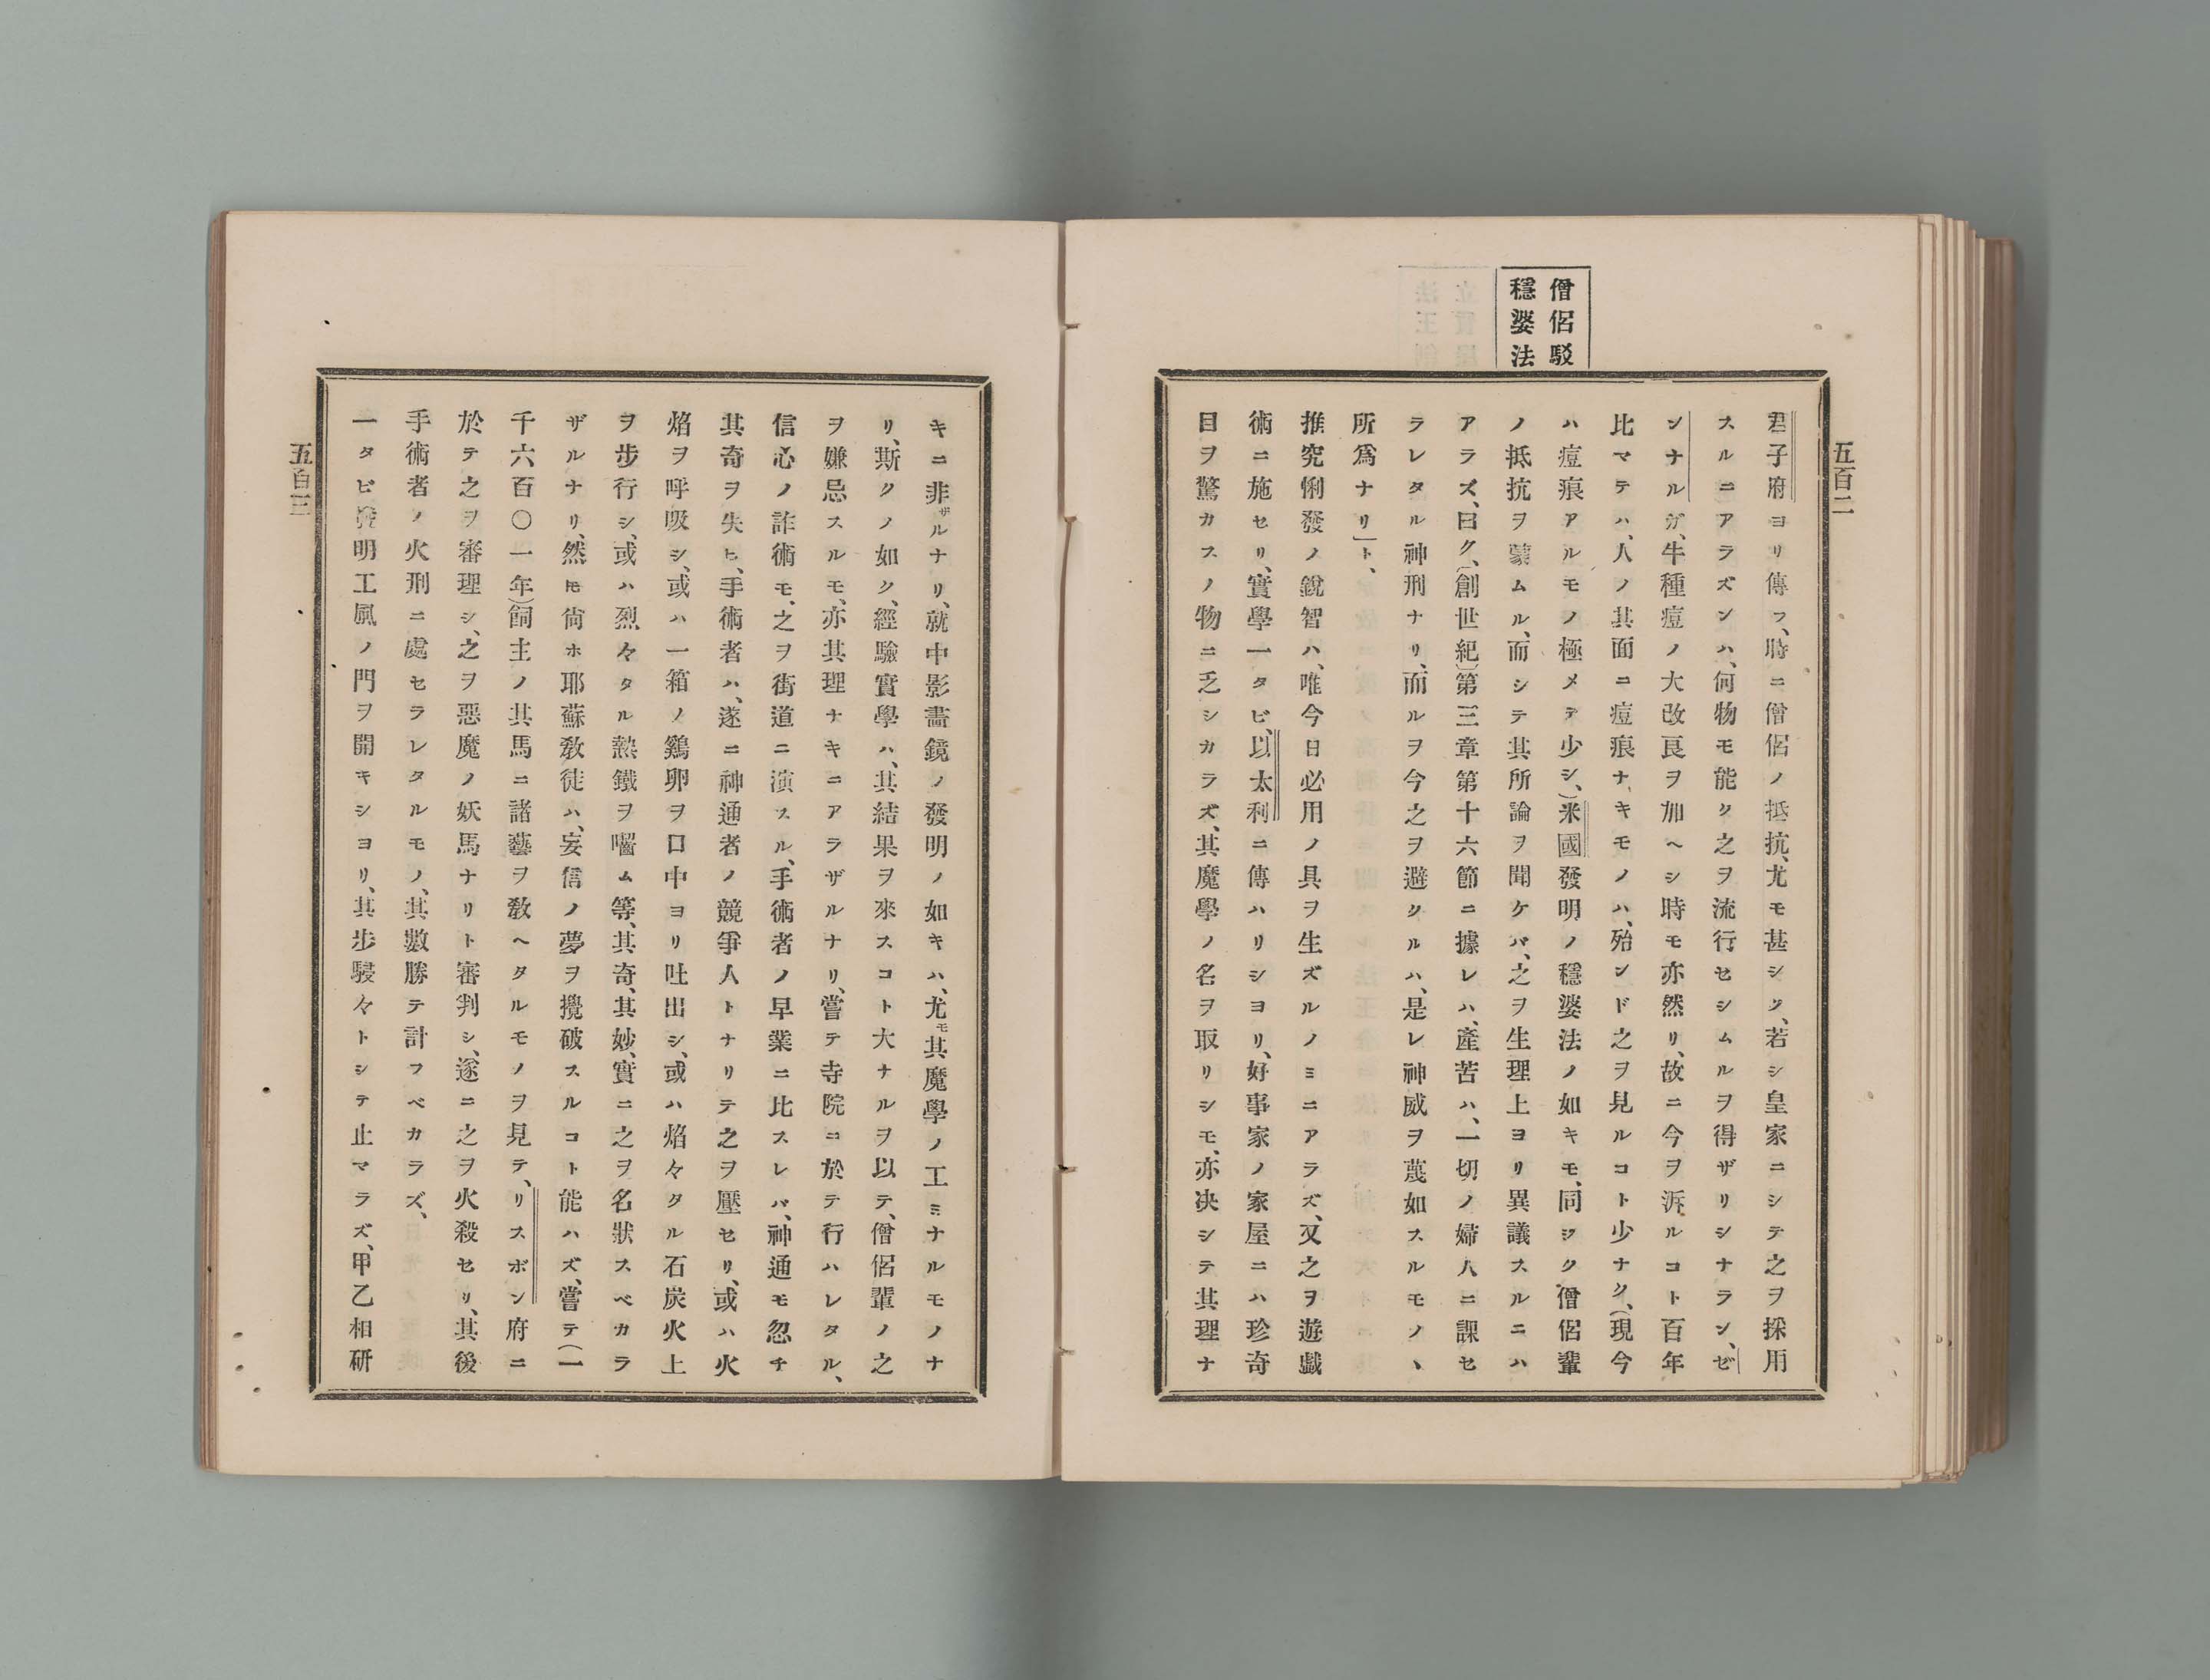 五百二
僧侶駁
穩婆法
君子府ヨリ傳フ、時ニ僧侶ノ抵抗、尤モ甚シク、若シ皇家ニシテ之ヲ採用
スルニアラズンハ、何物モ能ク之ヲ流行セシムルヲ得ザリシナラン、ゼ
ンナルガ、牛種痘ノ大改良ヲ加ヘシ時モ亦然リ、故ニ今ヲ泝ルコト百年、
比マテハ、人ノ其面ニ痘痕ナキモノハ、殆ンド之ヲ見ルコト少ナク、(現今
ハ痘痕アルモノ極メテ少シ、)米國發明ノ穩婆法ノ如キモ、同ジク僧侶輩
ノ抵抗ヲ蒙ムル、而シテ其所論ヲ聞ケバ、之ヲ生理上ヨリ異議スルニハ
アラズ、曰ク、(創世紀)第三章第十六節ニ據レハ、產苦ハ、一切ノ婦人ニ課セ
ラレタル神刑ナリ、而ルヲ今之ヲ避クルハ、是レ神威ヲ蔑如スルモノヽ
所爲ナリ」ト、
推究悧發ノ銳智ハ、唯今日必用ノ具ヲ生ズルノミニアラズ、又之ヲ遊戯
術ニ施セリ、實學一タビ、以太利ニ傳ハリシヨリ、好事家ノ家屋ニハ珍奇
目ヲ驚カスノ物ニ乏シカラズ、其魔學ノ名ヲ取リシモ、亦決シテ其理ナ
キニ非ザルナリ、就中影畵鏡ノ發明ノ如キハ、尤モ其魔學ノ工ミナルモノナ
リ、斯クノ如ク、經驗實學ハ、其結果ヲ來スコト大ナルヲ以テ、僧侶輩ノ之
ヲ嫌忌スルモ、亦其理ナキニアラザルナリ、嘗テ寺院ニ於テ行ハレタル、
信心ノ詐術モ、之ヲ街道ニ演スル、手術者ノ早業ニ比スレバ、神通モ忽チ
其奇ヲ失ヒ、手術者ハ、遂ニ神通者ノ競爭人トナリテ之ヲ壓セリ、或ハ火
焰ヲ呼吸シ、或ハ一箱ノ鷄卵ヲ口中ヨリ吐出シ、或ハ焰々タル石炭火上
ヲ步行シ、或ハ烈々タル熱鐵ヲ嚙ム等、其奇、其妙、實ニ之ヲ名狀スベカラ
ザルナリ、然𪜈尙ホ耶蘇敎徒ハ、妄信ノ夢ヲ攪破スルコト能ハズ、嘗テ(一
千六百〇一年)飼主ノ其馬ニ諸藝ヲ敎ヘタルモノヲ見テ、リスボン府ニ
於テ之ヲ審理シ、之ヲ惡魔ノ妖馬ナリト審判シ、遂ニ之ヲ火殺セリ、其後
手術者ノ火刑ニ處セラレタルモノ、其數勝テ計フベカラズ、
一タビ發明工風ノ門ヲ開キシヨリ、其步駸々トシテ止マラズ、甲乙相研
五百三